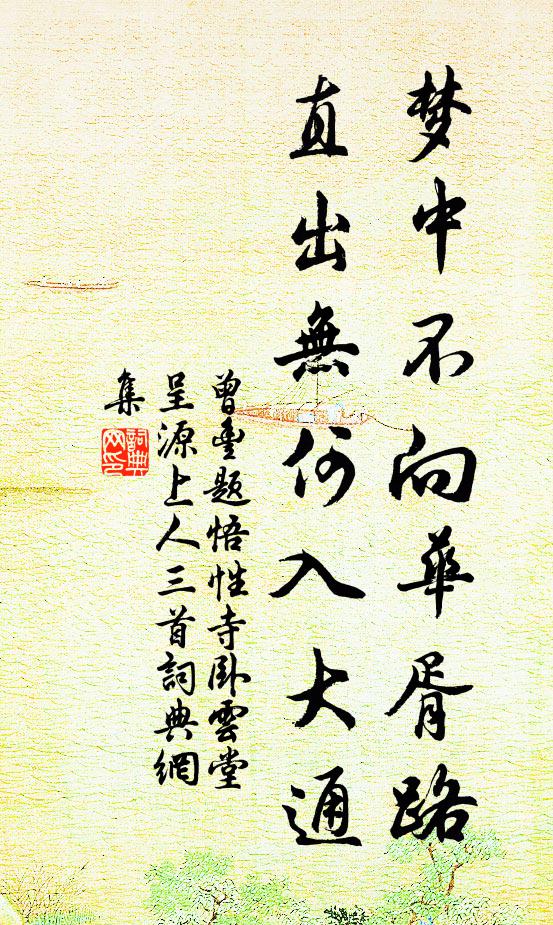 梦中不向華胥路
直出無何入大通
曾豊题悟性寺卧雲堂
呈源上人三首詞典網
集
詞典
网印